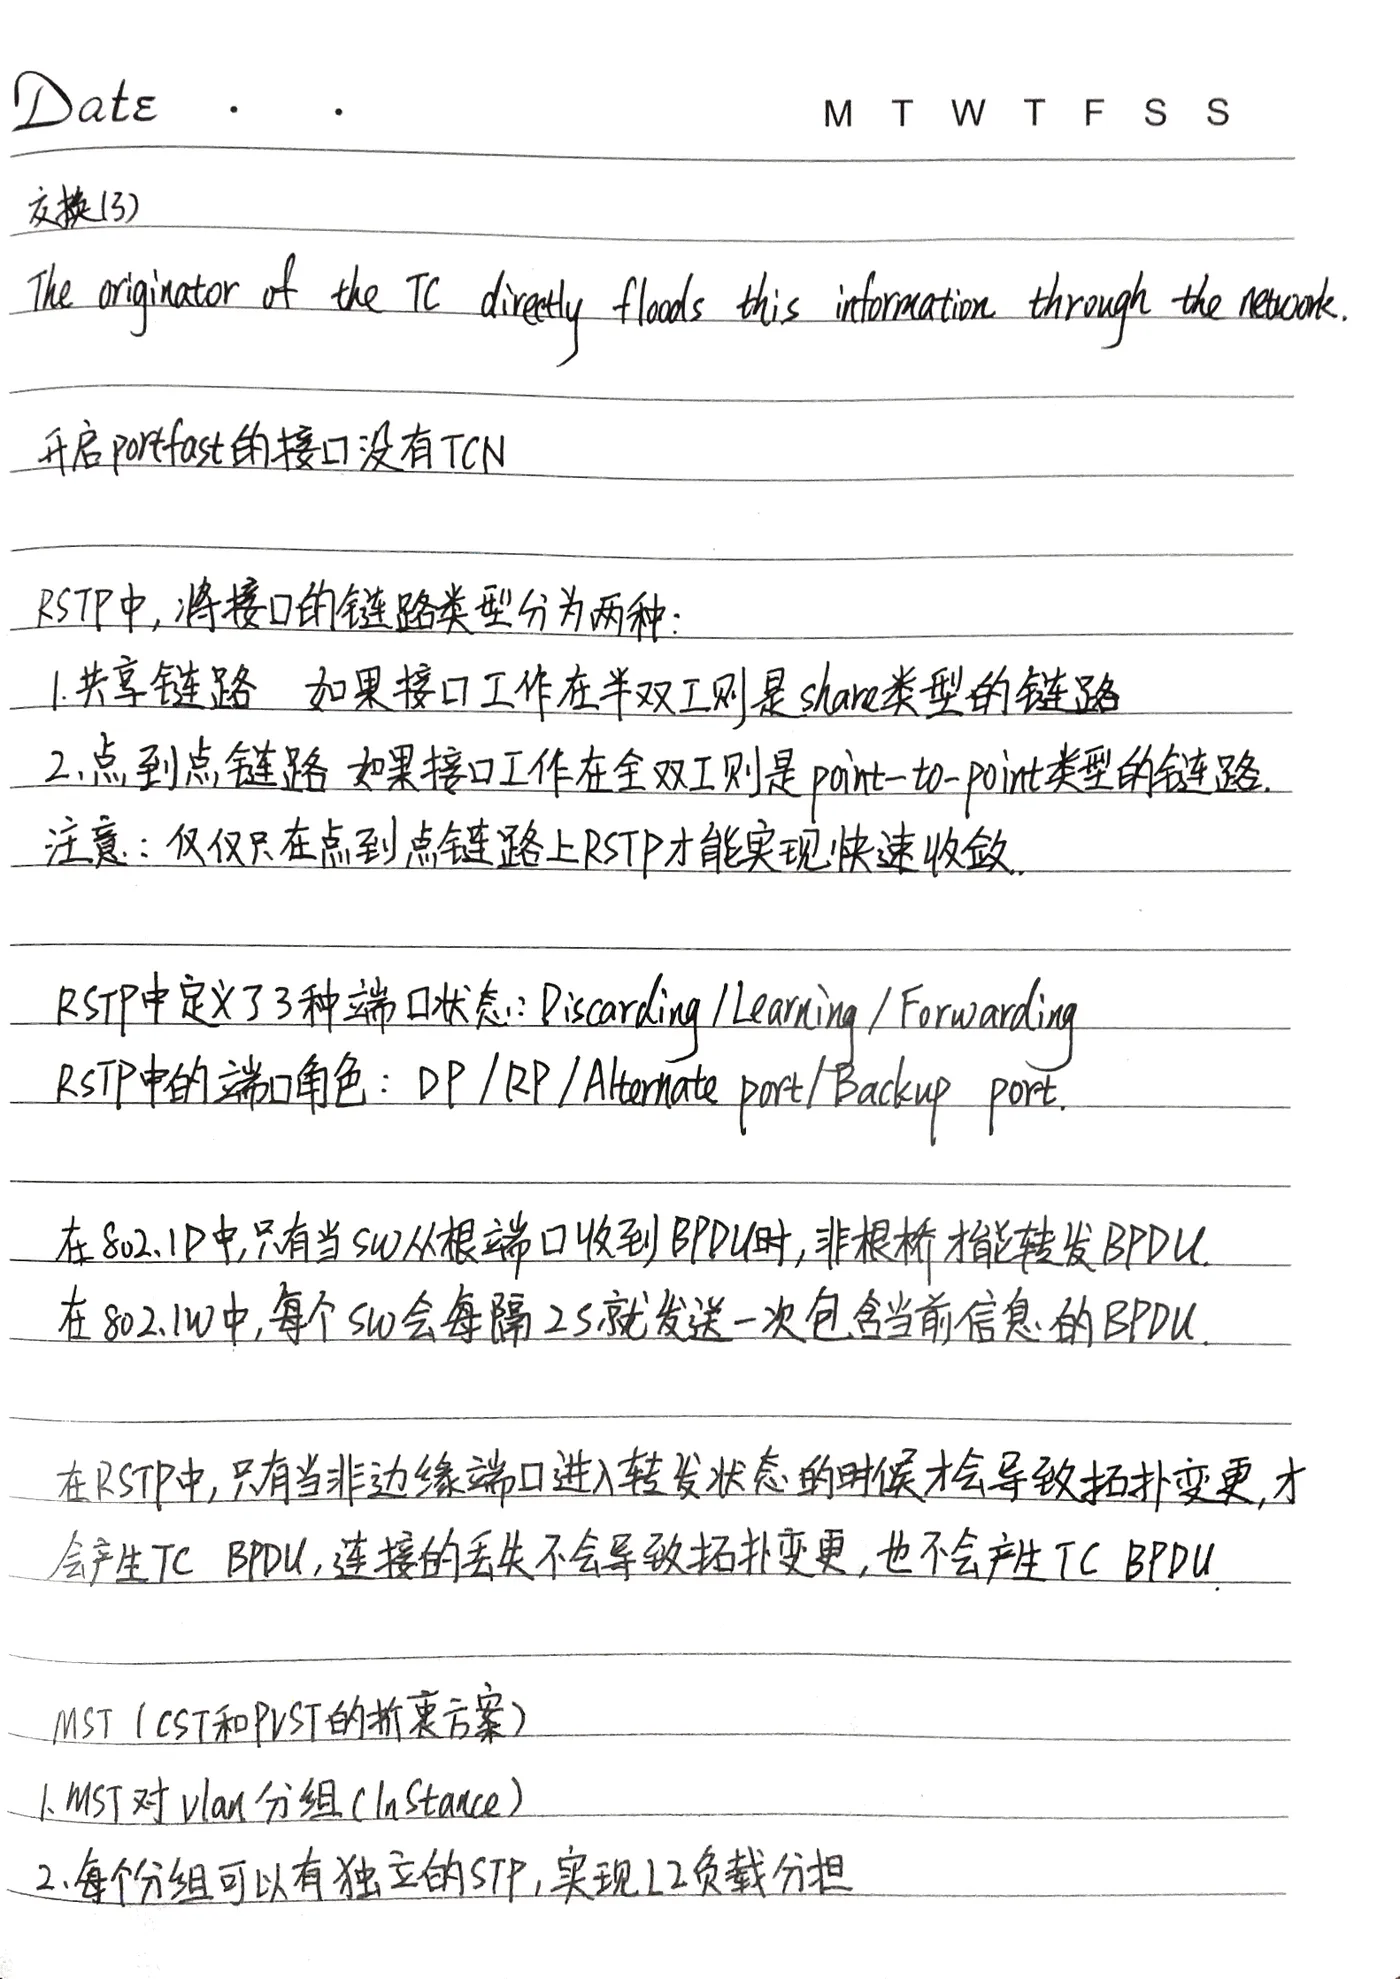 Date . .
M T W T F S S
交换(3)
The originator of the TC directly floods this information through the network.
开启portfast的接口没有TCN
RSTP中,将接口的链路类型分为两种:
1.共享链路 如果接口工作在半双工则是share类型的链路
2.点到点链路 如果接口工作在全双工则是point-to-point类型的链路.
注意:仅仅只在点到点链路上RSTP才能实现快速收敛.
RSTP中定义了3种端口状态:Discarding/Learning/Forwarding
RSTP中的端口角色:DP/RP/Alternate port/Backup port.
在802.1D中,只有当SW从根端口收到BPDU时,非根桥才能转发BPDU.
在802.1W中,每个SW会每隔2S就发送一次包含当前信息的BPDU.
在RSTP中,只有当非边缘端口进入转发状态的时候才会导致拓扑变更,才
会产生TC BPDU,连接的丢失不会导致拓扑变更,也不会产生TC BPDU.
MST(CST和PVST的折衷方案)
1.MST对vlan分组(Instance)
2.每个分组可以有独立的STP,实现L2负载分担